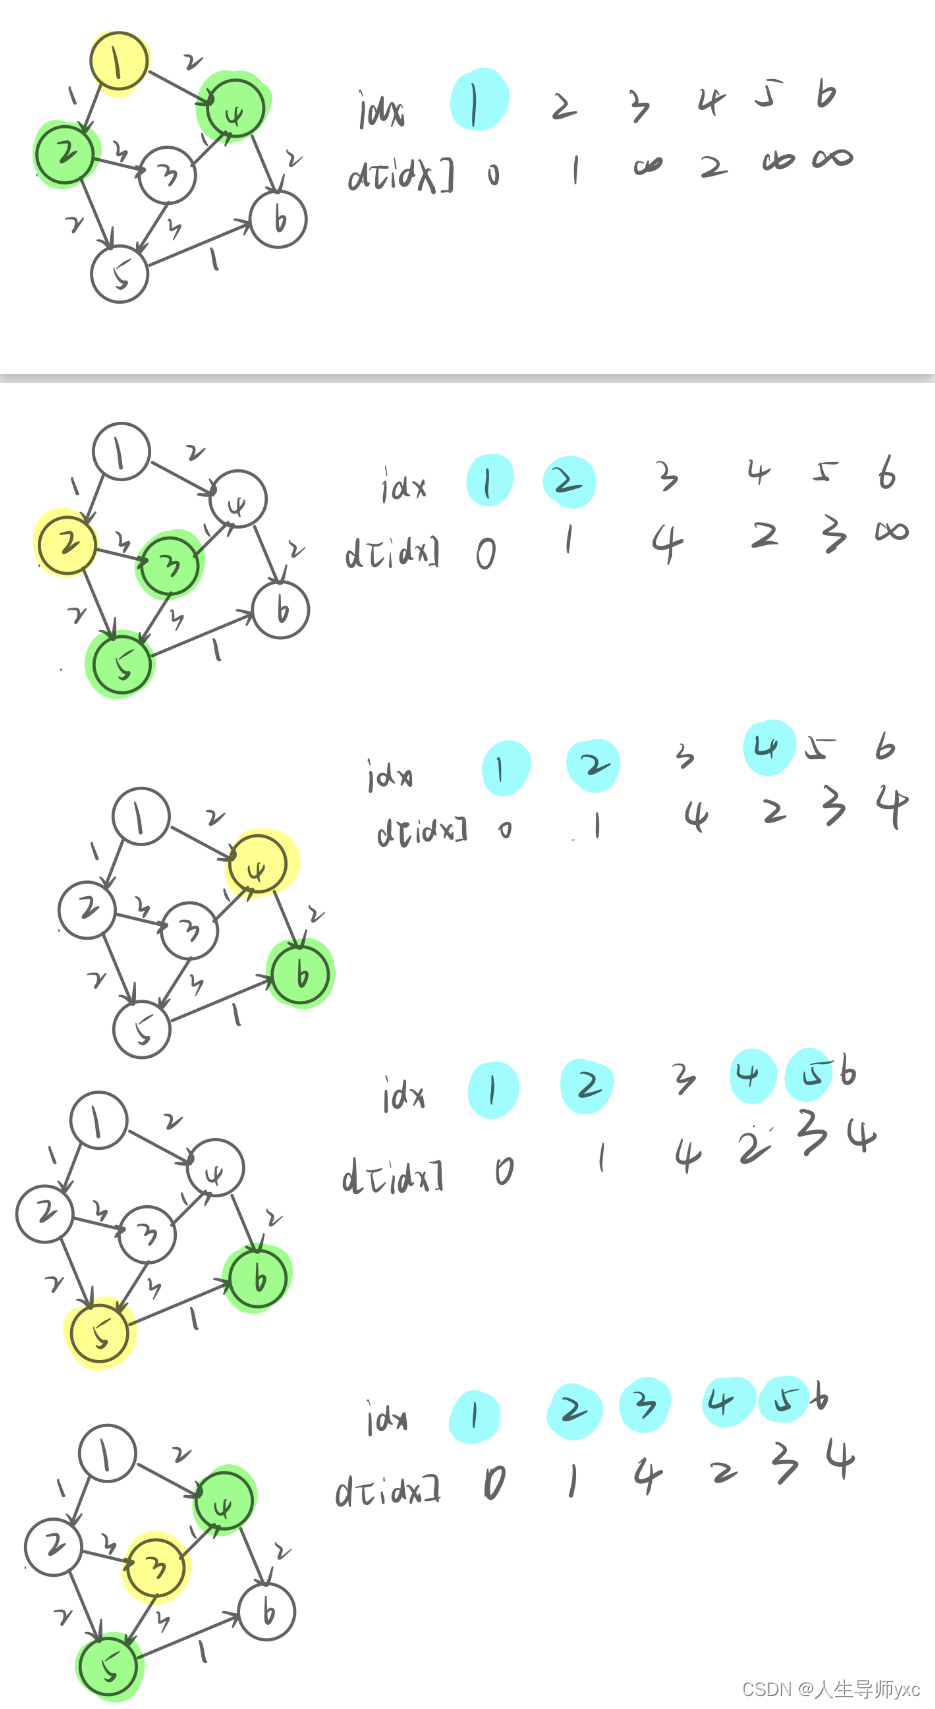 1 2 4
1 2 3 3 1
2 3 2 6
5 1
idx 1 2 3 4 5 6
d[idx] 0 1 ∞ 2 ∞ ∞
1 2 4
1 2 3 3 1
2 3 2 6
5 1
idx 1 2 3 4 5 6
d[idx] 0 1 4 2 3 ∞
1 2 4
1 2 3 3 1
2 3 2 6
5 1
idx 1 2 3 4 5 6
d[idx] 0 1 4 2 3 4
1 2 4
1 2 3 3 1
2 3 2 6
5 1
idx 1 2 3 4 5 6
d[idx] 0 1 4 2 3 4
1 2 4
1 2 3 3 1
2 3 2 6
5 1
idx 1 2 3 4 5 6
d[idx] 0 1 4 2 3 4
CSDN @人生导师yxc